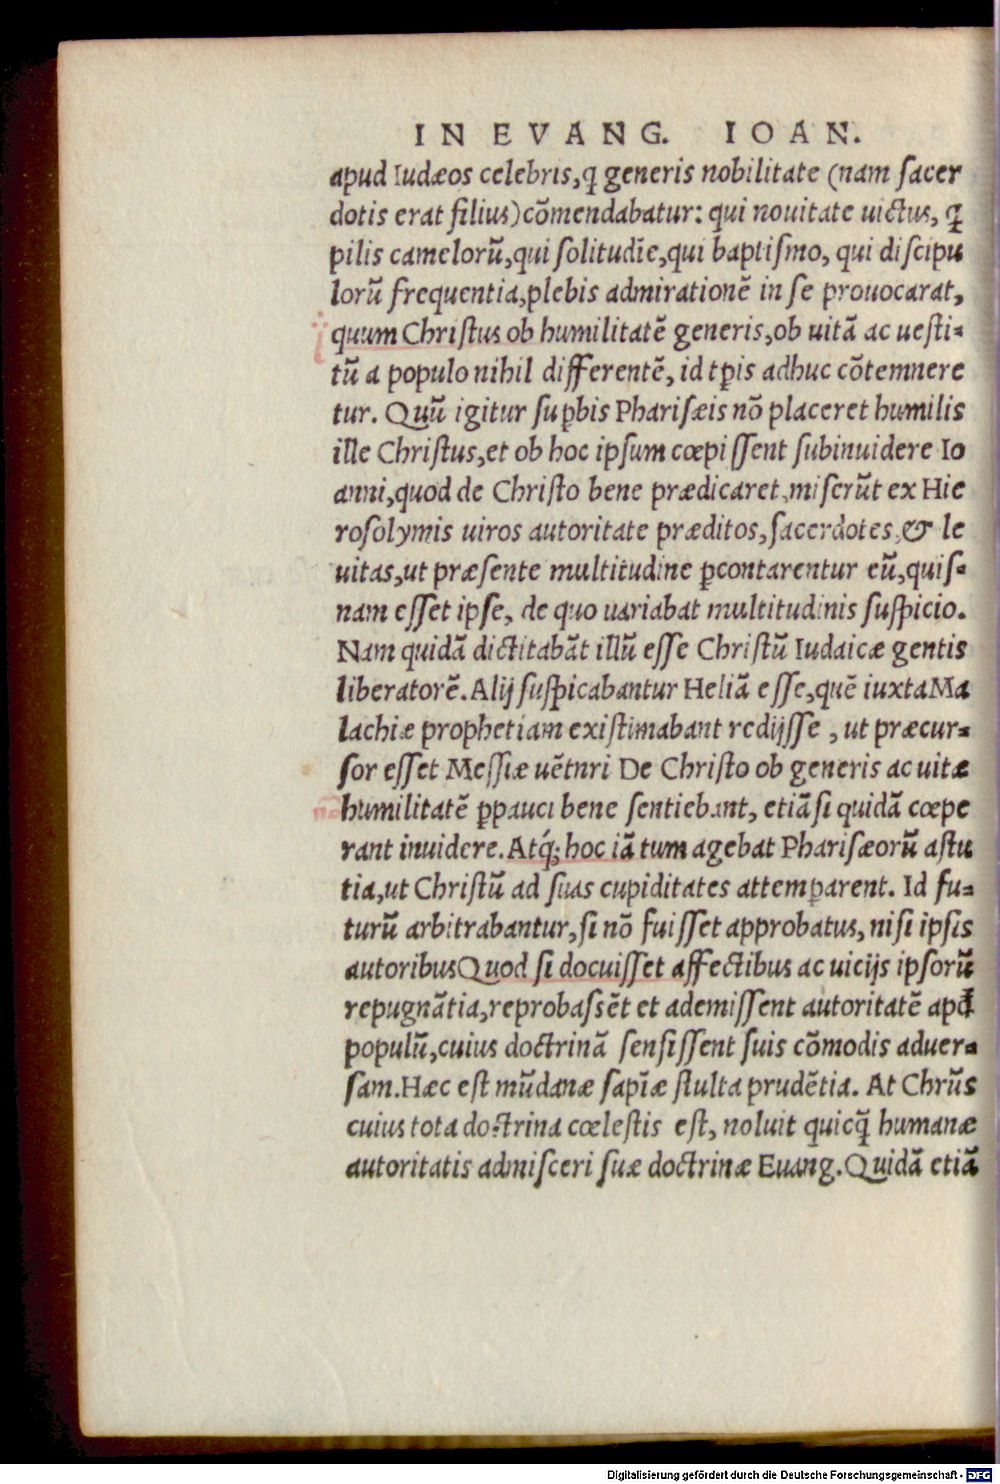 IN EVANG. IOAN.
apud Iudæos celebris,q̃ generis nobilitate (nam ſacer
dotis erat filius)cõmendabatur: qui nouitate uictus, q̃
pilis camelorũ,qui ſolitudĩe,qui baptiſmo, qui diſcipu
lorũ frequentia,plebis admirationẽ in ſe prouocarat,
quum Chriſtus ob humilitatẽ generis,ob uitã ac ueſti=
tũ a populo nihil differentẽ, id tꝑis adhuc cõtemnere
tur. Quũ igitur ſuꝑbis Phariſæis nõ placeret humilis
ille Chriſtus,et ob hoc ipſum cœpiſſent ſubinuidere Io
anni,quod de Chriſto bene prædicaret,miſerũt ex Hie
roſolymis uiros autoritate præditos,ſacerdotes,& le
uitas,ut præſente multitudine ꝑcontarentur eũ,quiſ=
nam eſſet ipſe, de quo uariabat multitudinis ſuſpicio.
Nam quidã dictitabãt illũ eſſe Chriſtũ Iudaicæ gentis
liberatorẽ.Alij ſuſpicabantur Heliã eſſe,quẽ iuxta Ma
lachiæ prophetiam exiſtimabant redijſſe , ut præcur=
ſor eſſet Meſſiæ uẽtnri De Chriſto ob generis ac uitæ
humilitatẽ ꝑpauci bene ſentiebant, etiãſi quidã cœpe
rant inuidere.Atq́; hoc iã tum agebat Phariſæorũ aſtu
tia,ut Chriſtũ ad ſuas cupiditates attemꝑarent. Id fu=
turũ arbitrabantur,ſi nõ fuiſſet approbatus, niſi ipſis
autoribusQuod ſi docuiſſet affectibus ac uicijs ipſorũ
repugnãtia,reprobaſsẽt et ademiſſent autoritatẽ apđ
populũ,cuius doctrinã ſenſiſſent ſuis cõmodis aduer=
ſam.Hæc eſt mũdanæ ſapĩæ ſtulta prudẽtia. At Chrũs
cuius tota doctrina cœleſtis eſt, noluit quicq̃ humanæ
autoritatis admiſceri ſuæ doctrinæ Euang.Quidã etiã
Digitalisierung gefördert durch die Deutsche Forschungsgemeinschaft - DFG